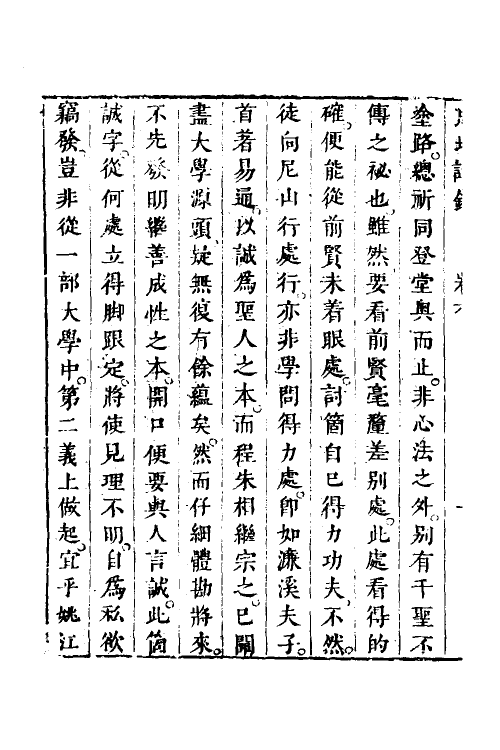 塗路。總祈同登堂奧而止。非心法之外。別有千聖不
傳之祕也。雖然。要看前賢毫釐差別處。此處看得的
確。便能從前賢未着眼處。討箇自已得力功夫。不然。
徒向尼山行處行。亦非學問得力處。卽如濂溪夫子。
首著易通。以誠爲聖人之本。而程朱相繼宗之。已闡
盡大學源頭。疑無復有餘蘊矣。然而仔細體勘將來。
不先發明繼善成性之本。開口便要與人言誠。此箇
誠字。從何處立得脚跟定。將使見理不明。自爲私欲
竊發。豈非從一部大學中。第二義上做起。宜乎姚江